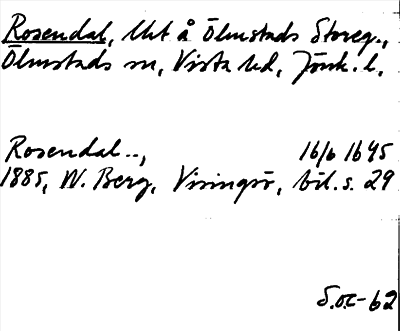 Rosendal, Uet å Ölmstads Storeg.,
Ölmstads sn, Vista hd, Jönk. l.
Rosendal..., 16/6 1645
1885, W. Berg, Visingsö, bil. s. 29
S.O.C-62